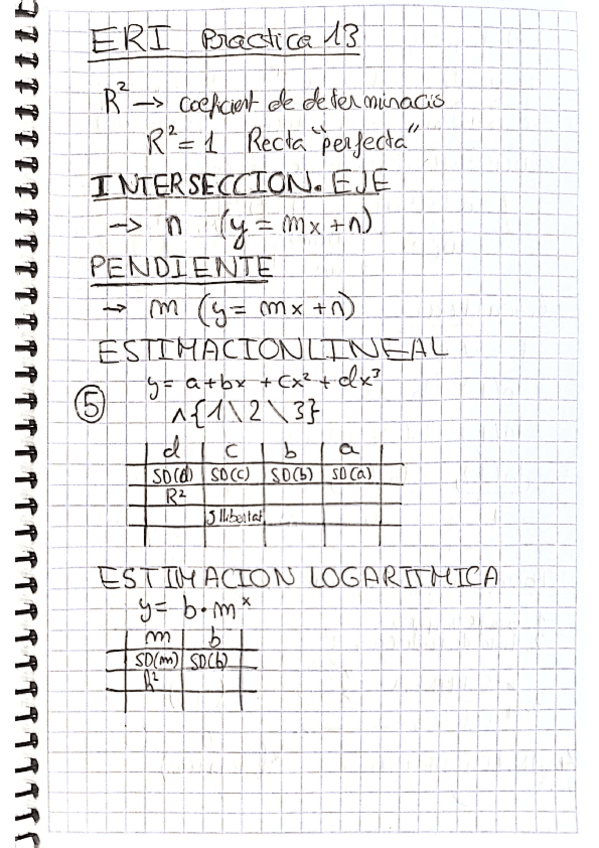 ERI Practica 13
R² → coeficient de determinacio
R² = 1 Recta "perfecta"
INTERSECCION. EJE
→ n (y = mx + n)
PENDIENTE
→ m (y = mx + n)
ESTIMACION LINEAL
y = a + bx + cx² + dx³
⑤ ^{1\2\3}
d c b a
SD(d) SD(c) SD(b) SD(a)
R²
llibertat
ESTIMACION LOGARITMICA
y = b·mˣ
m b
SD(m) SD(b)
R²